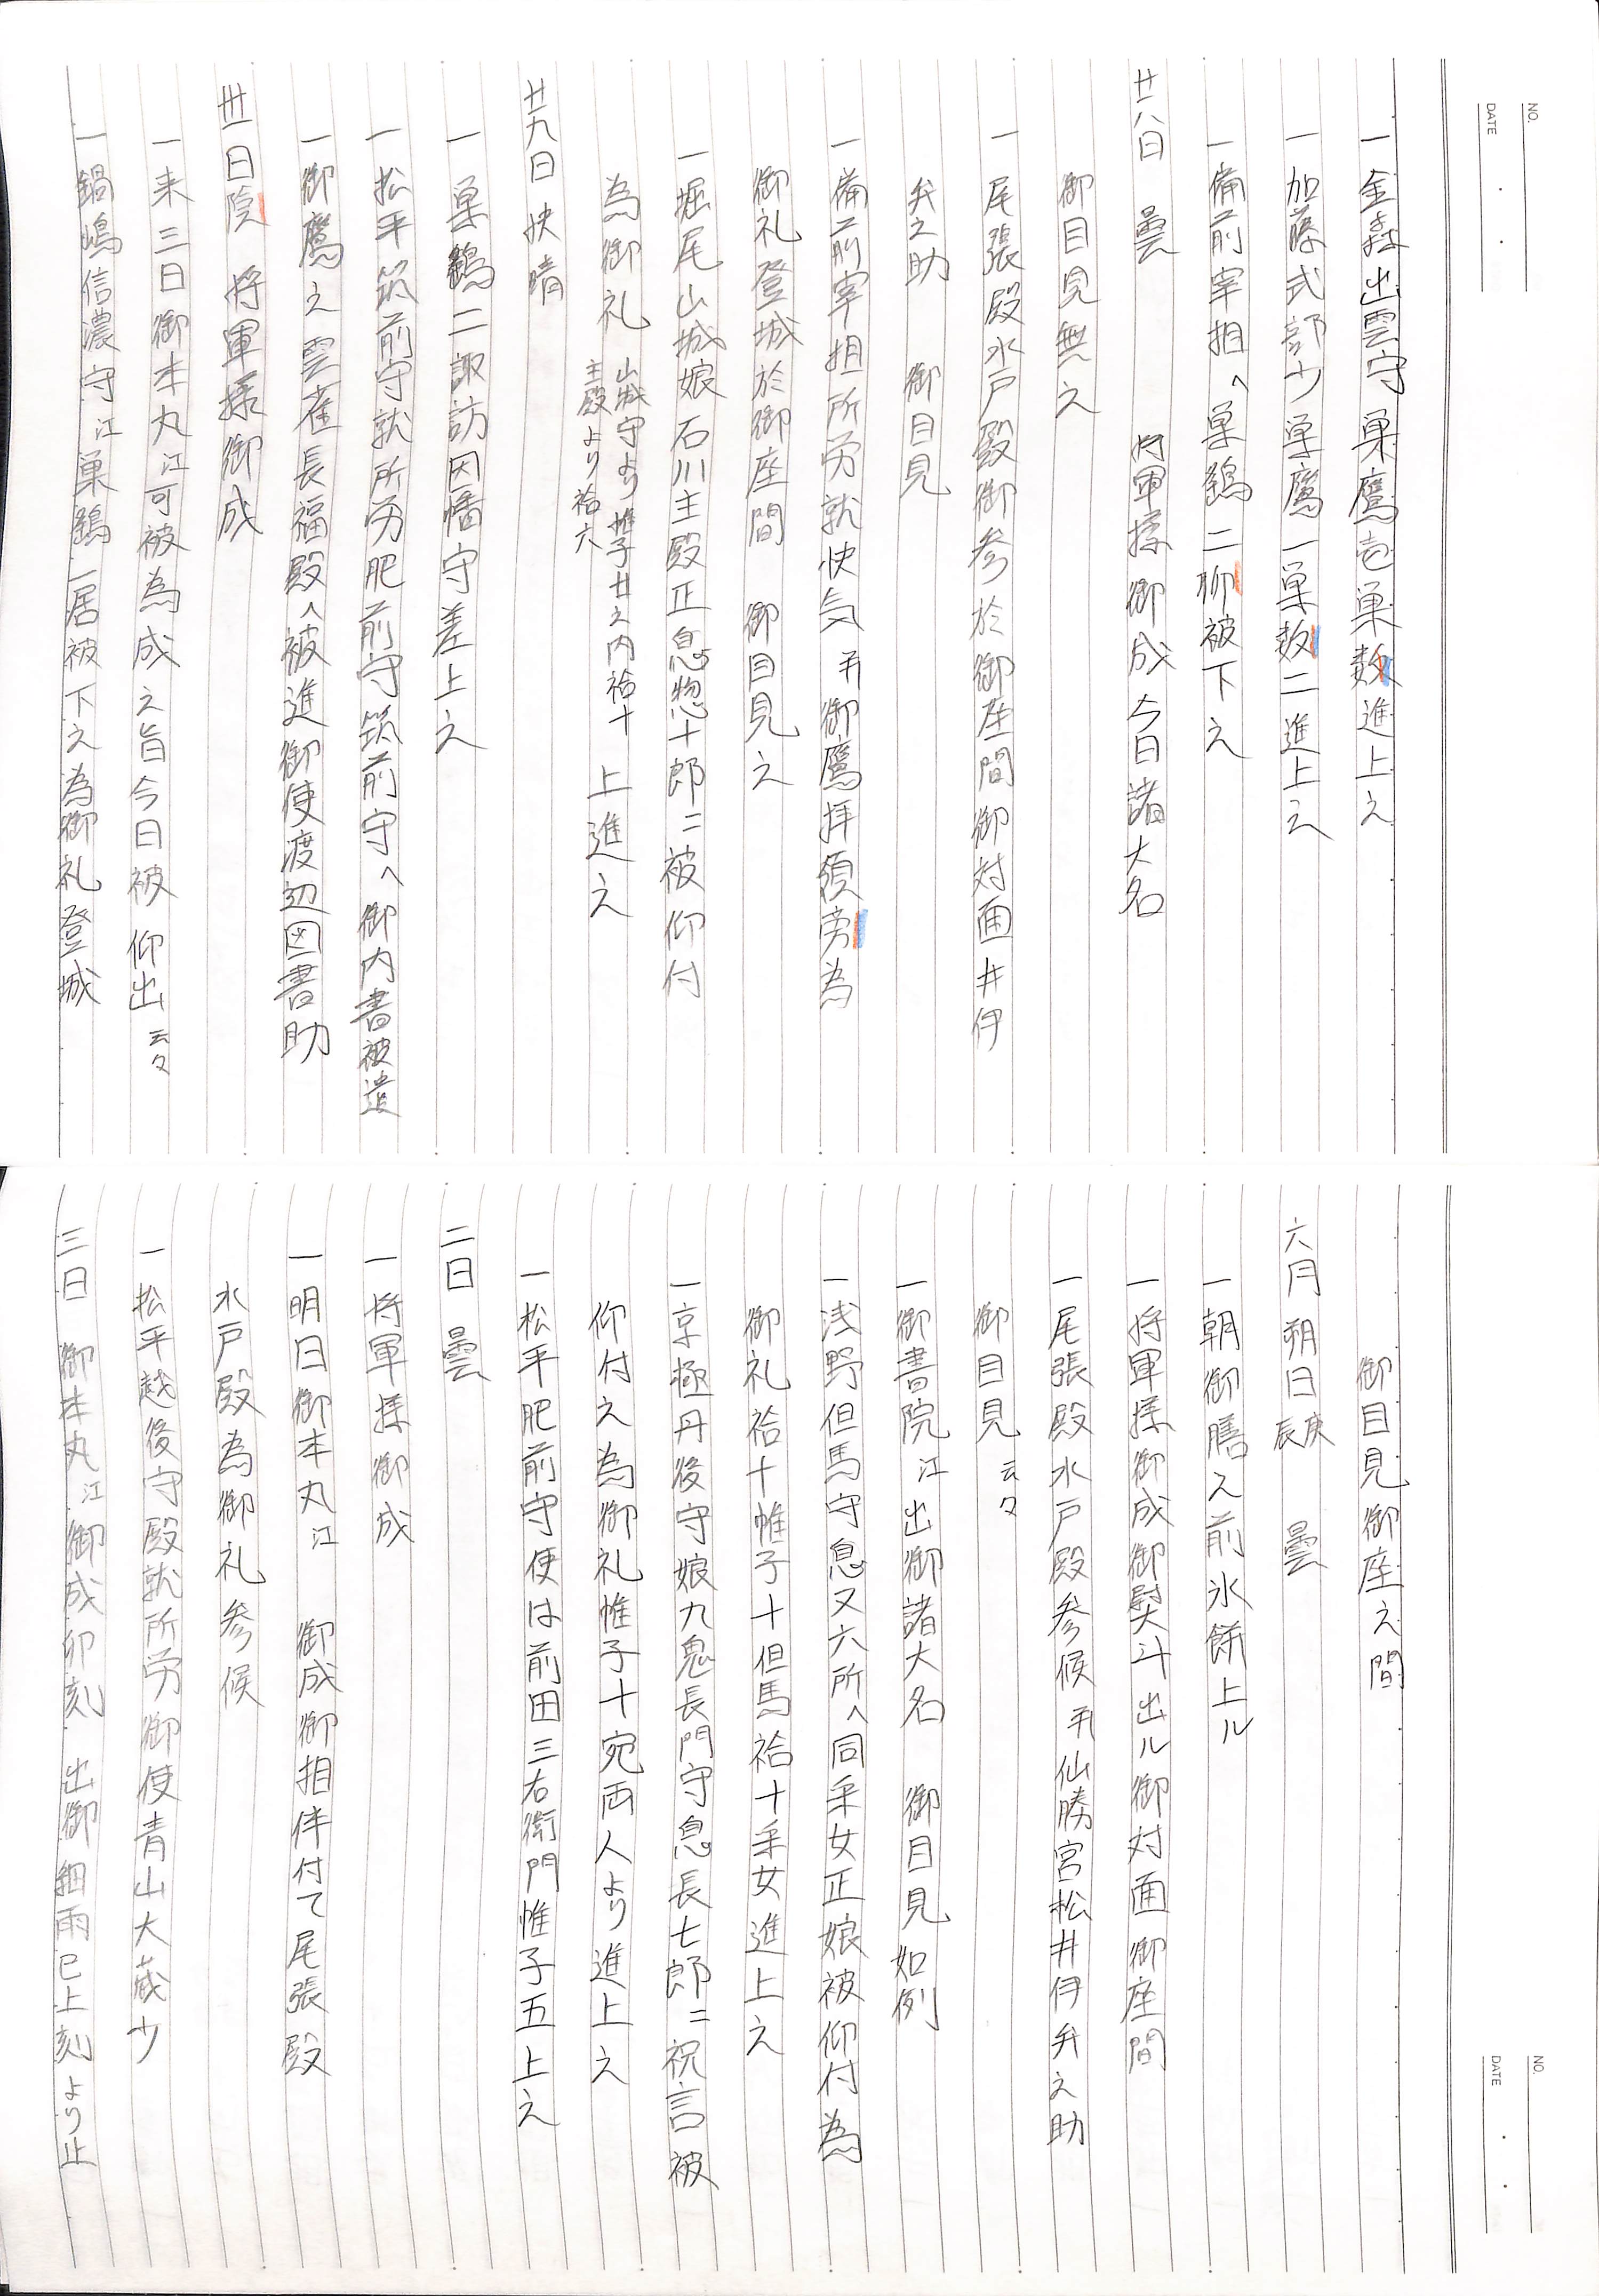 NO.
DATE
一金森出雲守巣鷹壱巣数進上之
一加藤式部少巣鷹一巣数二進上之
一備前宰相へ巣鷂二聊被下之
廿八日 曇 将軍様御成今日諸大名
御目見無之
一尾張殿水戸殿御参於御座間御対面井伊
弁之助 御目見
一備前宰相所労就快気并御鷹拝領旁為
御礼登城於御座間 御目見之
一堀尾山城娘石川主殿正息惣十郎ニ被仰付
為御礼 山城守より帷子廿之内袷十 主殿より袷六 上進之
廿九日 快晴
一巣鷂二諏訪因幡守差上之
一松平筑前守就所労肥前守筑前守へ御内書被遣
一御鷹之雲雀長福殿へ被進御使渡辺図書助
卅日陰 将軍様御成
一来三日御本丸江可被為成之旨今日被仰出云々
一鍋嶋信濃守江巣鷂一居被下之為御礼登城
NO.
DATE
御目見御座之間
六月朔日庚辰 曇
一朝御膳之前氷餅上ル
一将軍様御成御熨斗出ル御対面御座間
一尾張殿水戸殿参候并仙勝宮松井伊弁之助
御目見云々
一御書院江出御諸大名 御目見如例
一浅野但馬守息又六所へ同采女正娘被仰付為
御礼袷十帷子十但馬袷十采女進上之
一京極丹後守娘九鬼長門守息長七郎ニ祝言被
仰付之為御礼帷子十宛両人より進上之
一松平肥前守使は前田三右衛門帷子五上之
二日 曇
一将軍様御成
一明日御本丸江 御成御相伴付て尾張殿
水戸殿為御礼参候
一松平越後守殿就所労御使青山大蔵少
三日 御本丸江御成卯刻 出御細雨巳上刻より止